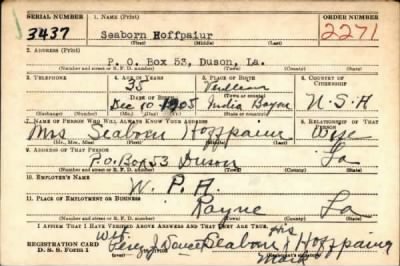 SERIAL NUMBER 1. NAME (Print) ORDER NUMBER
3437 Seaborn Hoffpaiur 2271
(First) (Middle) (Last)
2. ADDRESS (Print)
P. O. Box 53, Duson, La.
(Number and street or R. F. D. number) (Town) (County) (State)
3. TELEPHONE 4. AGE IN YEARS 5. PLACE OF BIRTH 6. COUNTRY OF CITIZENSHIP
35
DATE OF BIRTH (Town or county)
Dec 10 1905 U.S.A
(Exchange) (Number) (Mo.) (Day) (Yr.) (State or country)
7. NAME OF PERSON WHO WILL ALWAYS KNOW YOUR ADDRESS 8. RELATIONSHIP OF THAT PERSON
Mrs Seaborn Hoffpauir Wife
(Mr., Mrs., Miss) (First) (Middle) (Last)
9. ADDRESS OF THAT PERSON
P.O. Box 53 Duson La
(Number and street or R. F. D. number) (Town) (County) (State)
10. EMPLOYER'S NAME
W. P. A.
11. PLACE OF EMPLOYMENT OR BUSINESS
Rayne La
(Number and street or R. F. D. number) (Town) (County) (State)
I AFFIRM THAT I HAVE VERIFIED ABOVE ANSWERS AND THAT THEY ARE TRUE.
Wit. His
REGISTRATION CARD Seaborn X Hoffpauir
D. S. S. Form 1 Mark